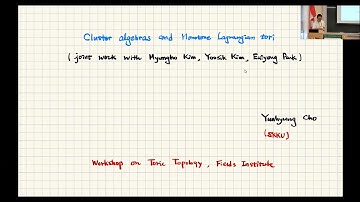 Cluster algebras and Monotone Lagrangian tori
(joint work with Myungho Kim, Yoosik Kim, Euiyong Park)
Yunhyung Cho
(SKKU)
Workshop on Toric Topology, Fields Institute